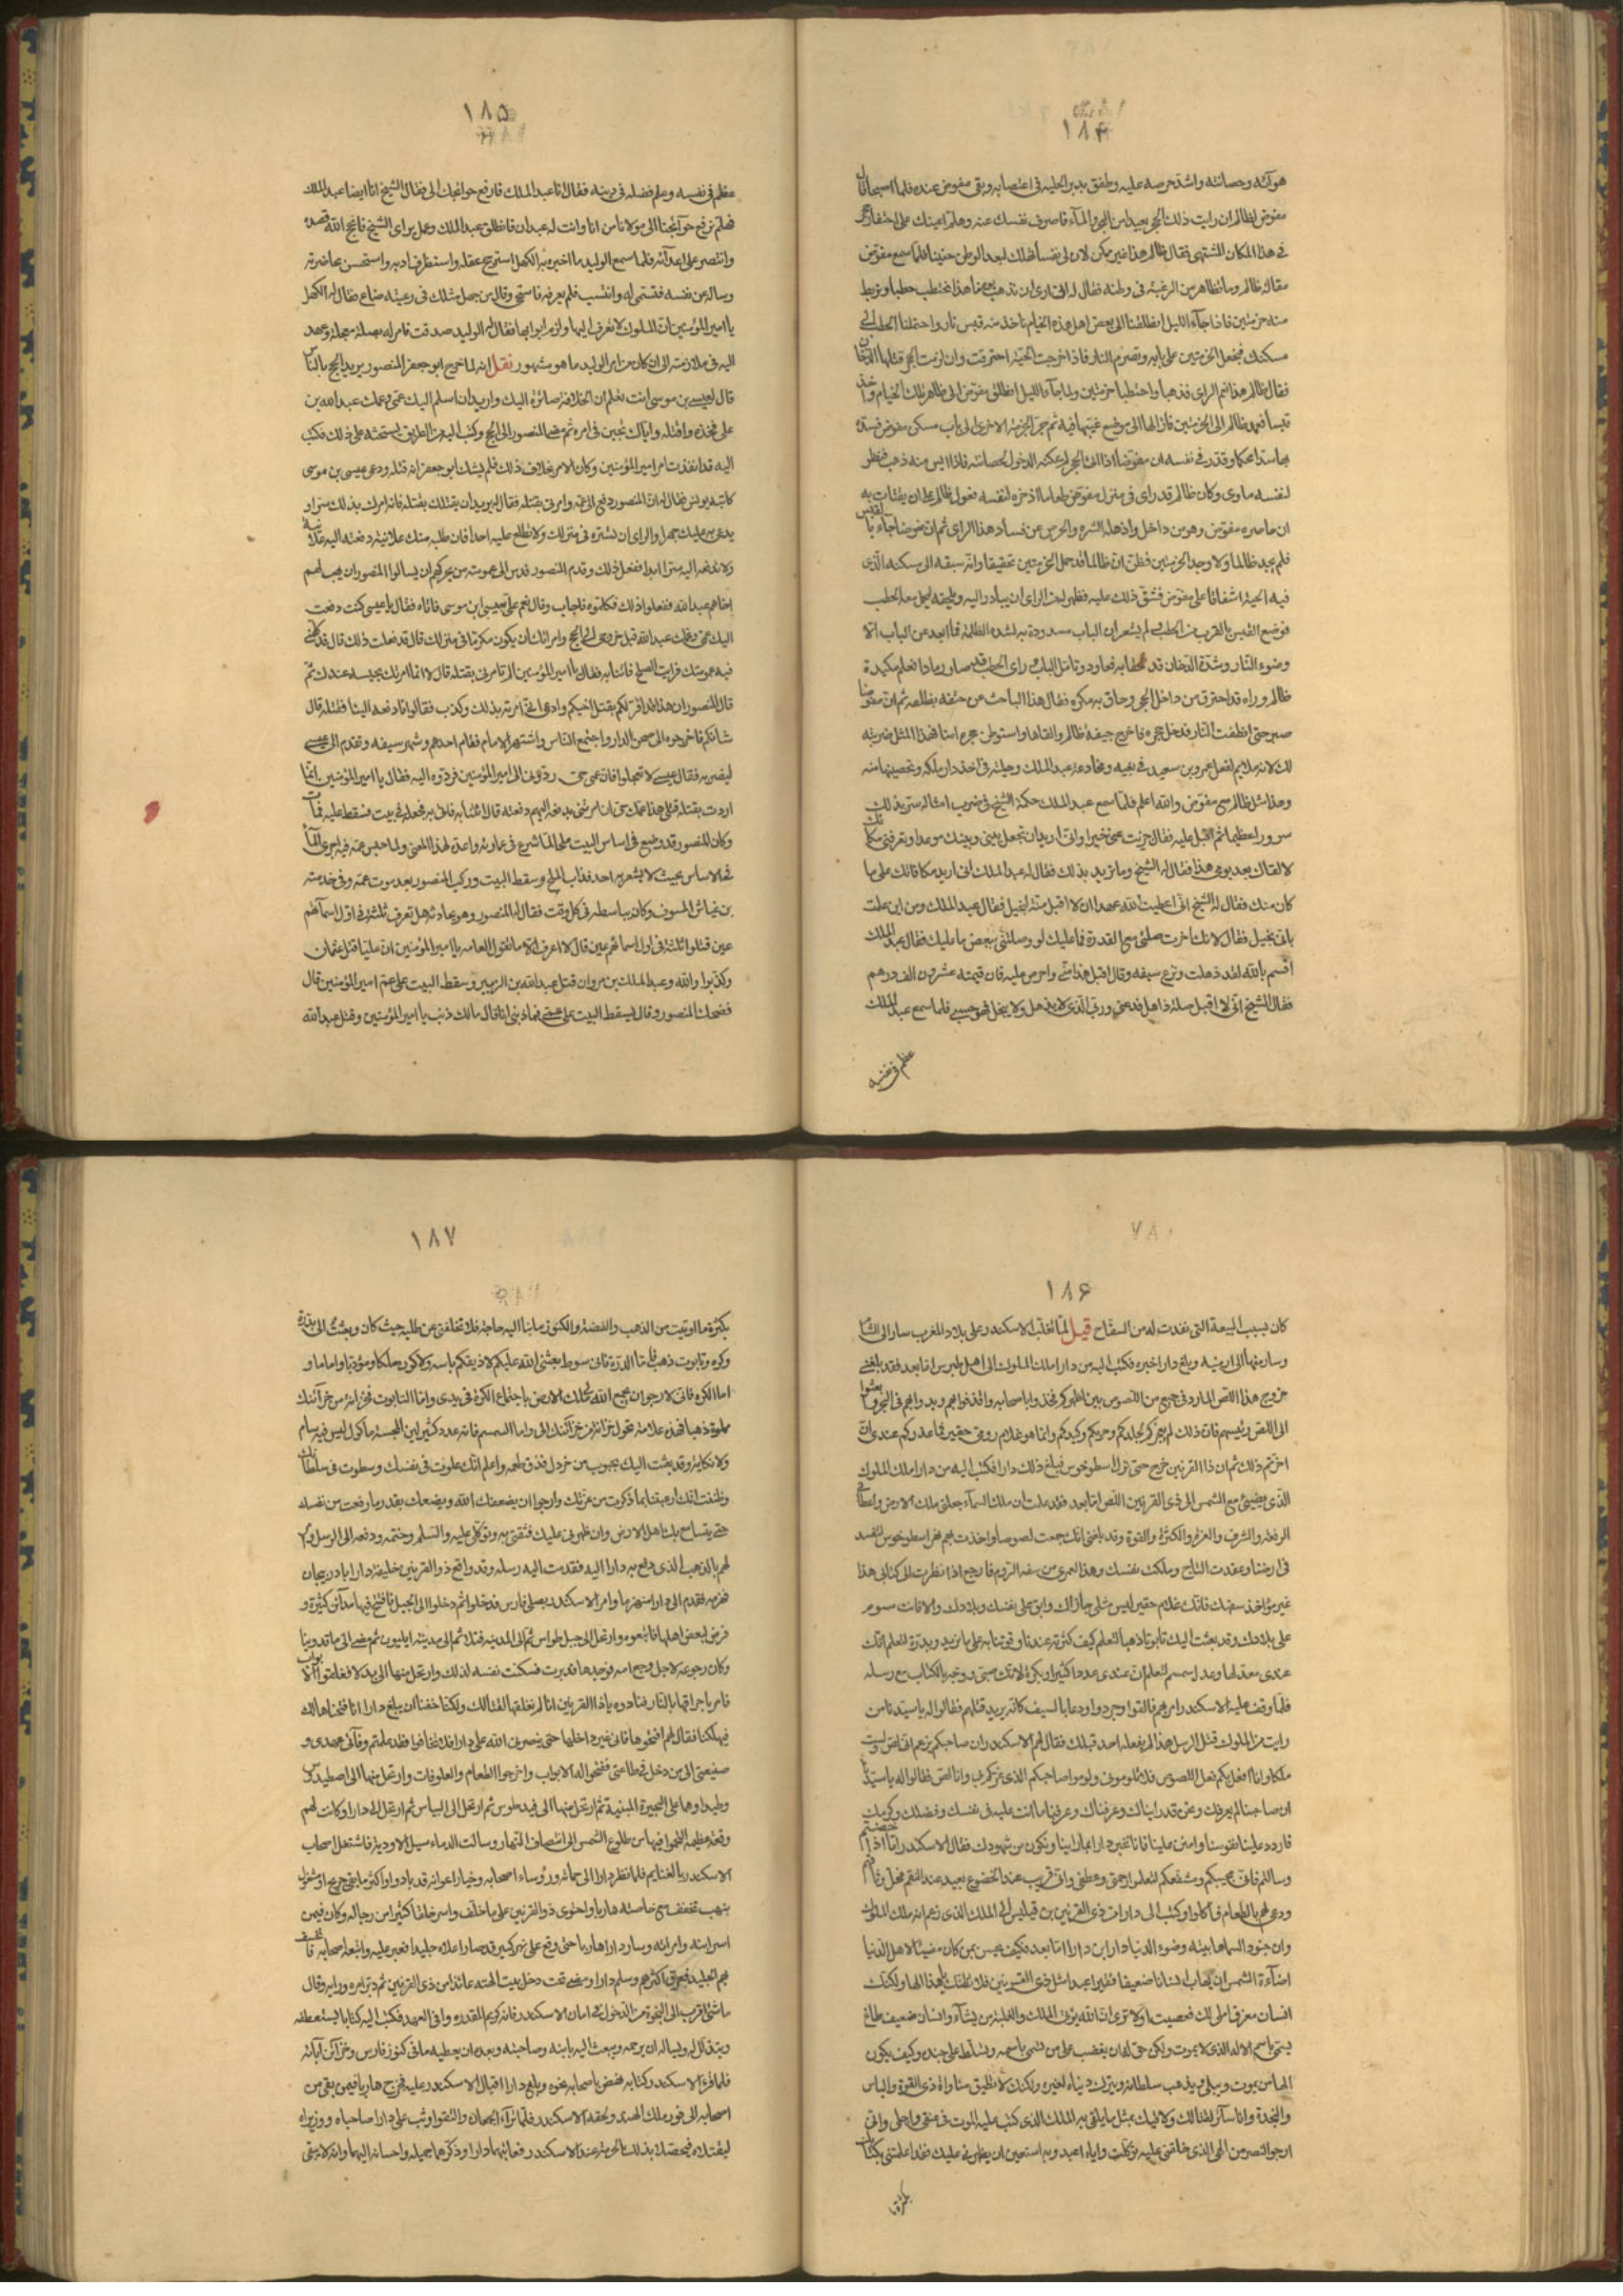 ١٨٤
هو آنته وحصانته واشتد حرصه عليه وطفق يدبر الحيلة في اغتصابه وبقى مفوض عنده فلما اصبحا قال
مفوض لظالم ان رايت ذلك الجحر بعيدا من الشجر والمآء فاصرف نفسك عنه وهلم اعينك على احتفار جحر
في هذا المكان المشتهى فقال ظالم هذا غير ممكن لان لى نفسا تهلك لبعد الوطن حنينا فلما سمع مفوض
مقالة ظالم وما تظاهر من الرغبة في وطنه فقال له انى ارى ان نذهب يومنا هذا نحتطب حطبا ونربط
منه حزمتين فاذا جآء الليل انطلقنا الى بعض اهل هذه الخيام ناخذ منه قبس نار واحتملنا الحطب الى
مسكنك فنجعل الحزمتين على بابه ونضرم النار فاذا خرجت الحية احترقت وان لزمت الجحر قتلها الدخان
فقال ظالم هذا نعم الراى فذهبا واحتطبا حزمتين ولما جآء الليل انطلق مفوض الى ظاهر تلك الخيام واخذ
قبسا فعمد ظالم الى الحزمتين فازالها الى موضع غيبها فيه ثم جر الحزمة الاخرى الى باب مسكن مفوض فسده
بها سدا محكما وقدر في نفسه ان مفوضا اذا اتى الجحر لم يمكنه الدخول لحصانته فاذا ايس منه ذهب فنظر
لنفسه ماوى وكان ظالم قد راى في منزل مفوض طعاما ادخره لنفسه فعول ظالم على ان يقتات به
ان حاصره مفوض وهو من داخل واذهله الشره والحرص عن فساد هذا الراى ثم ان مفوضا جآء بالقبس
فلم يجد ظالما ولا وجد الحزمتين فظن ان ظالما قد حمل الحزمتين تخفيفا وانه سبقه الى مسكنه الذى
فيه الحية اشفاقا على مفوض فشق ذلك عليه فظهر له من الراى ان يبادر اليه ويلحقه ليحمل معه الحطب
فوضع القبس بالقرب من الحطب ولم يشعر ان الباب مسدودة به لشدة الظلمة فما ابعد عن الباب الا
وضوء النار وشدة الدخان قد لحقا به فعاود وتامل الباب فراى الحطب قد صار رمادا فعلم مكيدة
ظالم وراه قد احترق من داخل الجحر وحاق به مكره فقال هذا الباحث عن حتفه بظلفه ثم ان مفوضا
صبر حتى انطفت النار فدخل جحره فاخرج جيفة ظالم والقاها واستوطن جحره امنا فهذا المثل ضربته
لك لانه ملايم لفعل عمرو بن سعيد في بغيه ومخادعة عبد الملك وحيلته في اخذ دار ملكه وتحصينها منه
وهذا مثل ظالم مع مفوض والله اعلم فلما سمع عبد الملك حكمة الشيخ في ضرب امثاله سر بذلك
سرورا عظيما ثم اقبل عليه فقال جزيت عنى خيرا وانى اريد ان تجعل بينى وبينك موعدا وتعرفنى مكانك
لالقاك بعد يومى هذا فقال له الشيخ وما تريد بذلك فقال له عبد الملك انى اريد مكافاتك على ما
كان منك فقال له الشيخ انى اعطيت الله عهدا ان لا اقبل منة لبخيل فقال عبد الملك ومن اين علمت
بانى بخيل فقال لانك اخرت صلتى مع القدرة فما عليك لو وصلتنى ببعض ما عليك فقال عبد الملك
اقسم بالله لقد ذهلت ونزع سيفه وقال اقبل هذا منى واحرص عليه فان قيمته عشرون الف درهم
فقال الشيخ انى لا اقبل صلة ذاهل فدعنى وربى الذى لا يذهل ولا يبخل فهو حسبى فلما سمع عبد الملك
عظم في نفسه
١٨٥
عظم في نفسه وعلم فضله في دينه فقال انا عبد الملك فارفع حوائجك الى فقال الشيخ انا ايضا عبد الملك
فهلم نرفع حوآئجنا الى مولانا من انا وانت له عبدان فانطلق عبد الملك وعمل براى الشيخ فانجح الله قصده
وانتصر على اعدآئه فلما سمع الوليد ما اخبره به الكهل استرجح عقله واستظرف ادبه واستحسن محاضرته
وساله عن نفسه فتسمى له وانتسب فلم يعرفه فاستحى وقال من جهل مثلك في رعيته ضاع فقال له الكهل
يا امير المؤمنين ان الملوك لا تعرف الا من تعرف اليها ولزم ابوابها فقال له الوليد صدقت فامر له بصلة معجلة وعهد
اليه في ملازمته الى ان كان من امر الوليد ما هو مشهور نقل انه لما خرج ابو جعفر المنصور يريد الحج بالناس
قال لعيسى بن موسى انت تعلم ان الخلافة صائرة اليك واريد ان اسلم اليك عمى وعمك عبد الله بن
على فخذه واقتله واياك تجبن في امره ثم مضى المنصور الى الحج وكتب اليه من الطريق يستحثه على ذلك فكتب
اليه قد انفذت امر امير المؤمنين وكان الامر بخلاف ذلك فلم يشك ابو جعفر انه قتله ودعى عيسى بن موسى
كاتبه يونس فقال له ان المنصور دفع الى عمه وامرنى بقتله فقال له يريد ان يقتلك بقتله فانه امرك بذلك سرا و
يدعى به عليك جهرا والراى ان تستره في منزلك ولا تطلع عليه احدا فان طلبه منك علانية دفعته اليه علانية
ولا تدفعه اليه سرا ابدا ففعل ذلك وقدم المنصور فدس الى عمومته من يحركهم ان يسالوا المنصور ان يهب لهم
اخاهم عبد الله ففعلوا ذلك فكلموه فاجاب وقال نعم على بعيسى ابن موسى فاتاه فقال يا عيسى كنت دفعت
اليك عمى وعمك عبد الله قبل خروجى الى الحج وامرتك ان يكون مكرما في منزلك قال قد فعلت ذلك قال قد كلمنى
فيه عمومتك فرايت الصفح فائتنا به فقال يا امير المؤمنين الم تامرنى بقتله قال لا انما امرتك بحبسه عندك ثم
قال المنصور ان هذا قد اقر لكم بقتل اخيكم وادعى انى امرته بذلك وكذب فقالوا فادفعه الينا فنقتله قال
شانكم فاخرجوه الى صحن الدار واجتمع الناس واشتهر الامر فقام احدهم وشهر سيفه وتقدم الى عيسى
ليضربه فقال عيسى لا تعجلوا فان عمى حى ردونى الى امير المؤمنين فردوه اليه فقال يا امير المؤمنين انما
اردت بقتله قتلى هذا عمك حى ان امرتنى بدفعه اليهم دفعته قال ائتنا به فاتى به فجعله في بيت فسقط عليه فمات
وكان المنصور قد وضع في اساس البيت ملحا لما شرع في عمارته واعده لهذا المعنى ولما حبس عمه فيه اجرى المآء
في الاساس بحيث لا يشعر به احد فذاب الملح وسقط البيت وركب المنصور بعد موت عمه وفى خدمته
بن عياش المسوف وكان يباسطه في كل وقت فقال له المنصور وهو يحادثه هل تعرف ثلثة في اول اسمآئهم
عين قتلوا ثلثة في اول اسمائهم عين قال لا اعرف الا ما تقول العامه يا امير المؤمنين ان عليا قتل عثمان
وكذبوا والله وعبد الملك بن مروان قتل عبد الله بن الزبير وسقط البيت على عم امير المؤمنين قال
فضحك المنصور وقال سقط البيت على عمى فما ذنبى انا قال مالك ذنب يا امير المؤمنين وقتل عبد الله
١٨۶
كان بسبب البيعة التى نفدت له من السفاح قيل لما تغلب الاسكندر على بلاد المغرب سار الى الشام
وسار منها الى ارمينيه وبلغ دارا خبره فكتب اليه من دارا ملك الملوك الى اهل طبرس اما بعد فقد بلغنى
خروج هذا اللص المارد في جميع من اللصوص بين اظهركم فخذوا باصحابه واقذفوا بهم وبدوابهم في البحر وابعثوا
الى اللص رئيسهم فان ذلك لم يعجزكم لجلدكم وحربكم وكيدكم وانما هو غلام رومى حقير فما عذركم عندى ان
اخرتم ذلك ثم ان ذا القرنين خرج حتى نزل اسطوخوس فبلغ ذلك دارا فكتب اليه من دارا ملك الملوك
الذى يضيئ مع الشمس الى ذى القرنين اللص اما بعد فقد علمت ان ملك السمآء جعلنى ملك الارض واعطانى
الرفعة والشرف والعز والكثرة والقوة وقد بلغنى انك جمعت لصوصا واخذت بهم نهر اسطوخوس لتفسد
في ارضنا وعقدت التاج وملكت نفسك وهذا لعمرى من سفه الروم فارجع اذا نظرت الى كتابى هذا
غير مؤاخذ بسفهك فانك غلام حقير ليس مثلى جازاك وابق على نفسك وبلادك والا فانت مسوم
على بلادك وقد بعثت اليك تابوتا ذهبا لتعلم كيف كثرته عندنا وقوتنا به على ما نريد وبدرة لتعلم انك
عندى معد لها وعدل سمسم لتعلم ان عندى عددا كثيرا وبكرة لانك صبى ووجه بالكتاب مع رسله
فلما وقف عليه الاسكندر امر بهم فالقوا وجردوا ودعا بالسيف كانه يريد قتلهم فقالوا له يا سيدنا من
رايت من الملوك قتل الرسل هذا لم يفعله احد قبلك فقال لهم الاسكندر ان صاحبكم يزعم انى لص ولست
ملكا وانا افعل بكم فعل اللصوص فلا تلومونى ولوموا صاحبكم الذى غركم بى وانا لص فقالوا له يا سيدنا
ان صاحبنا لم يعرفك ونحن قد رايناك وعرفناك وعرفنا ما انت عليه في نفسك وفضلك وكرمك
فاردد علينا نفوسنا وامنن علينا فانا نخبر دارا بما راينا ونكون من شهودك فقال الاسكندر اما اذا خضعتم
وسالتم فانى مجيبكم ومشفعكم لتعلموا رحمتى وعطفى وانى قريب عند الخضوع بعيد عند النقم فحل وثاقهم
ودعى لهم بالطعام فاكلوا وكتب الى دارا من ذى القرنين بن فيلبس الى الملك الذى زعم انه ملك الملوك
وان جنود السما هابته وضوء الدنيا دارا بن دارا اما بعد فكيف يحسن بمن كان مضيئا لاهل الدنيا
اضآءة الشمس ان يهاب انسانا ضعيفا فقيرا عبدا مثل ذى القرنين فلا نظنك بهذا الها ولكنك
انسان معز في املى لك فعصيت اولا ترى ان الله يؤتى الملك والغلبة من يشآء وانسان ضعيف طاغ
يتمى باسم الاله الذى لا يموت ولكن حق له ان يغضب على من تسمى باسمه وتسلط على جنده وكيف يكون
الها من يموت ويبلى ويذهب سلطانه ويترك دنياه لغيره ولكنك لا تطيق مناواة ذى القوة والباس
والنجدة وانا سآئر لقتالك وملاقيك بمثل ما يلاقى به الملك الذى كتب عليه الموت في عنقى واجلى وانى
ارجو النصر من الهى الذى خلقنى عليه توكلت واياه اعبد وبه استعين ان يظهرنى عليك فقد اعلمتنى بكتابك
بكثرة
١٨٧
بكثرة ما اوتيت من الذهب والفضة والكنوز وما بنا اليه حاجة فلا تخلفنى عن طلبه حيث كان وبعثت الى بدرة
وكره وتابوت ذهب فاما الدرة فانى سوط بعثنى الله عليكم لاذيقكم باسه ولاكون ملكا ومؤدبا واماما و
اما الكره فانى لارجو ان يجمع الله لى ملك الارض باجتماع الكرة في يدى واما التابوت فخزانة من خزآئنك
مملوة ذهبا فهذه علامة تحول خزائن خزآئنك الى واما السمسم فانه عدد كثير لين المجسة ماكول ليس فيه سام
ولا نكاية وقد بعثت اليك بحبوب من خردل فذق طعمه واعلم انك علوت في نفسك وسطوت في سلطانك
وظننت انك ارعبتنا بما ذكرت من عزتك وارجوا ان يضعفك الله ويضعك بقدر ما رفعت من نفسك
حتى يتسامع بك اهل الارض وان ظهورى عليك فثقتى به وتوكلى عليه والسلم وختمه ودفعه الى الرسل وامر
لهم بالذهب الذى دفع به دارا اليه فقدمت اليه رسله وقد واقع ذو القرنين خليفة دارا باذربيجان
فهزمه فقدم الى دارا منهزما وامر الاسكندر يصلى فارس فدخلوا ثم دخلوا الى الجبل فافتتح فيها مدآئن كثيرة و
فرض لبعض اهلها فاتبعوه وارتحل الى جبل طواس ثم الى المدينه فتلا ثم الى مدينة ايليون ثم مضى الى ماقدونيا
وكان رجوعه لاجل وجع امه فوجدها قد برئت فسكنت نفسه لذلك وارتحل منها الى بدلا فغلقوا الابواب
فامر باحراقها بالنار فنادوه يا ذا القرنين انا لم نغلقها لقتالك ولكنا خفنا ان يبلغ دارا انا فتحناها لك
فيهلكنا فقال لهم افتحوها فانى غير داخلها حتى ينصرنى الله على دارا
صنيعى الى من دخل في طاعتى ففتحوا له الابواب واخرجوا الطعام والعلوفات وارتحل منها الى اصطيدس
وطيداوها على البحيرة المبنية ثم ارتحل منها الى فيدطوس ثم ارتحل الى البياس ثم ارتحل الى دارا وكانت لهم
وقعة عظيمه التحموا فيها من طلوع الشمس الى انتصاف النهار وسالت الدماء سيل الاودية فاشتغل اصحاب
الاسكندر بالغنايم فلما نظر دارا الى حماته ورؤساء اصحابه وخيار اعوانه قد بادوا واكثر ما بقى جريح او مشغول
بنهب مع خاصته هاربا واحتوى ذو القرنين على ما خلف واسر خلقا كثيرا من رجاله وكان فيمن
اسر ابنته وامراته وسار دارا هاربا حتى وقع على نهر كبير قد صار اعلاه جليدا فعبر عليه واتبعه اصحابه فانخسف
بهم الجليد فغرق اكثرهم وسلم دارا ومضى حتى دخل بيت الهته عائذا من ذى القرنين ثم دبر امره ورايه وقال
ما شئ اقرب الى النجوة من الدخول في امان الاسكندر فانه كريم القدرة وافى العهد فكتب اليه كتابا يستعطفه
ويتذلل له ويساله ان يرحمه ويبعث اليه بابنه وصاحبته ويعده ان يعطيه ما في كنوز فارس وخزآئن آبائه
فلما قرئ الاسكندر كتابه نهض باصحابه نحوه وبلغ دارا اقبال الاسكندر عليه فخرج هاربا فيمن بقى من
اصحابه الى فور ملك الهند ولحقه الاسكندر فلما ترآء الجمعان والتقوا وثب على دارا صاحباه ووزيراه
ليقتلاه فيحصلا بذلك الحرمة عند الاسكندر فعاتبهما دارا وذكرهما جميله واحسانه اليهما وانه لا يبقى